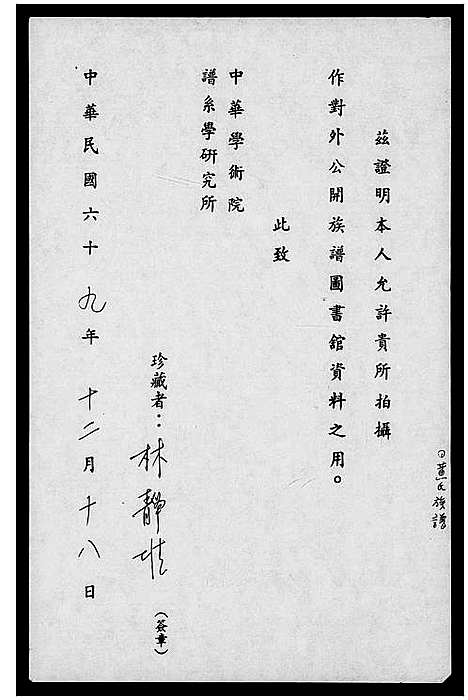 茲證明本人允許貴所拍攝
作對外公開族譜圖書舘資料之用。
此致
中華學術院
譜系學研究所
珍藏者：林靜
（簽章）
中華民國六十九年十二月十八日
氏族譜